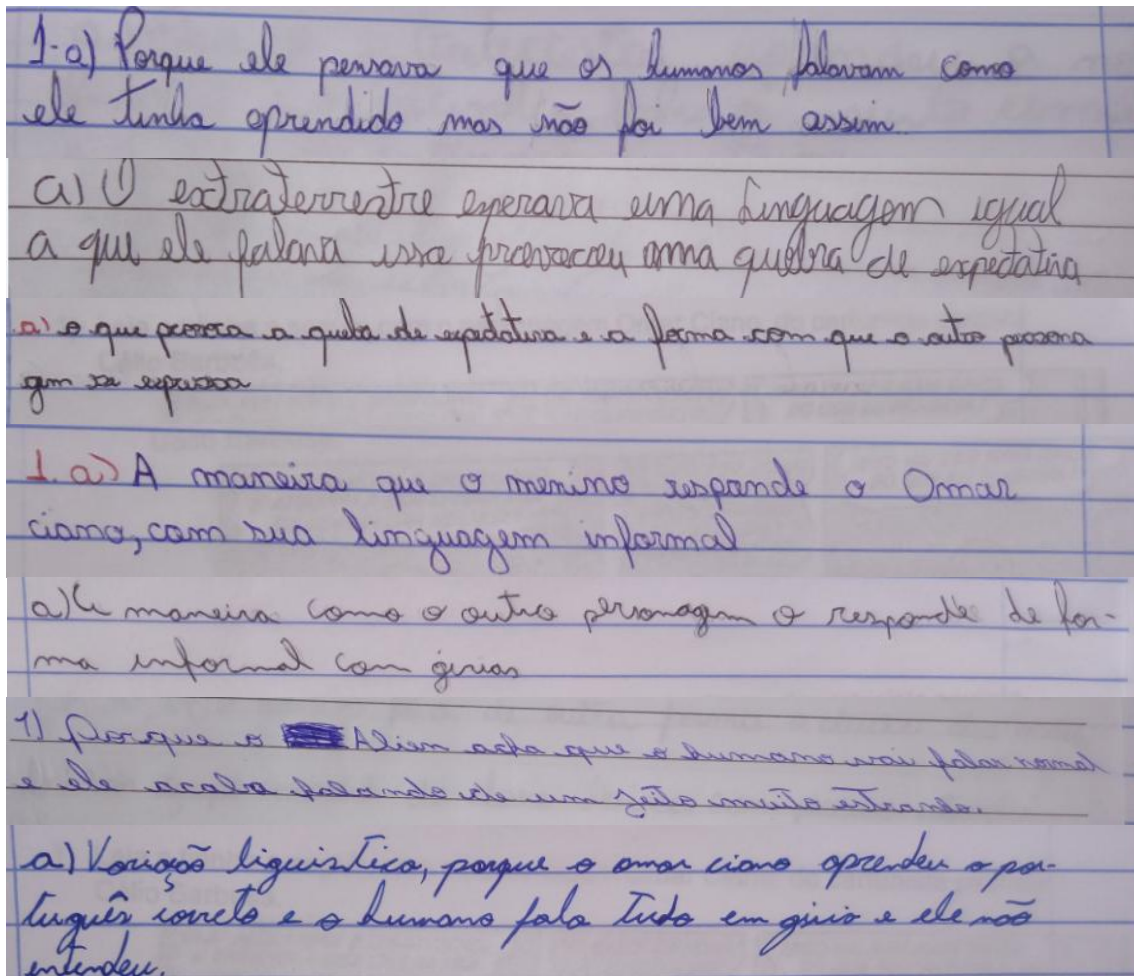 1-a) Porque ele pensava que os humanos falavam como
ele tinha aprendido mas não foi bem assim
a) O extraterrestre esperava uma linguagem igual
a que ele falava isso provocou uma quebra de expectativa
a) o que provoca a queba de expectativa e a forma com que o outro persona
gem se expressa
1. a) A maneira que o menino responde o Omar
ciano, com sua linguagem informal
a) A maneira como o outro personagem o responde de for-
ma informal com gírias
1) Porque o Alien acha que o humano vai falar normal
e ele acaba falando de um jeito muito estranho.
a) Variação liguistica, porque o omar ciano aprendeu o por-
tuguês correto e o humano fala tudo em giria e ele não
entendeu.